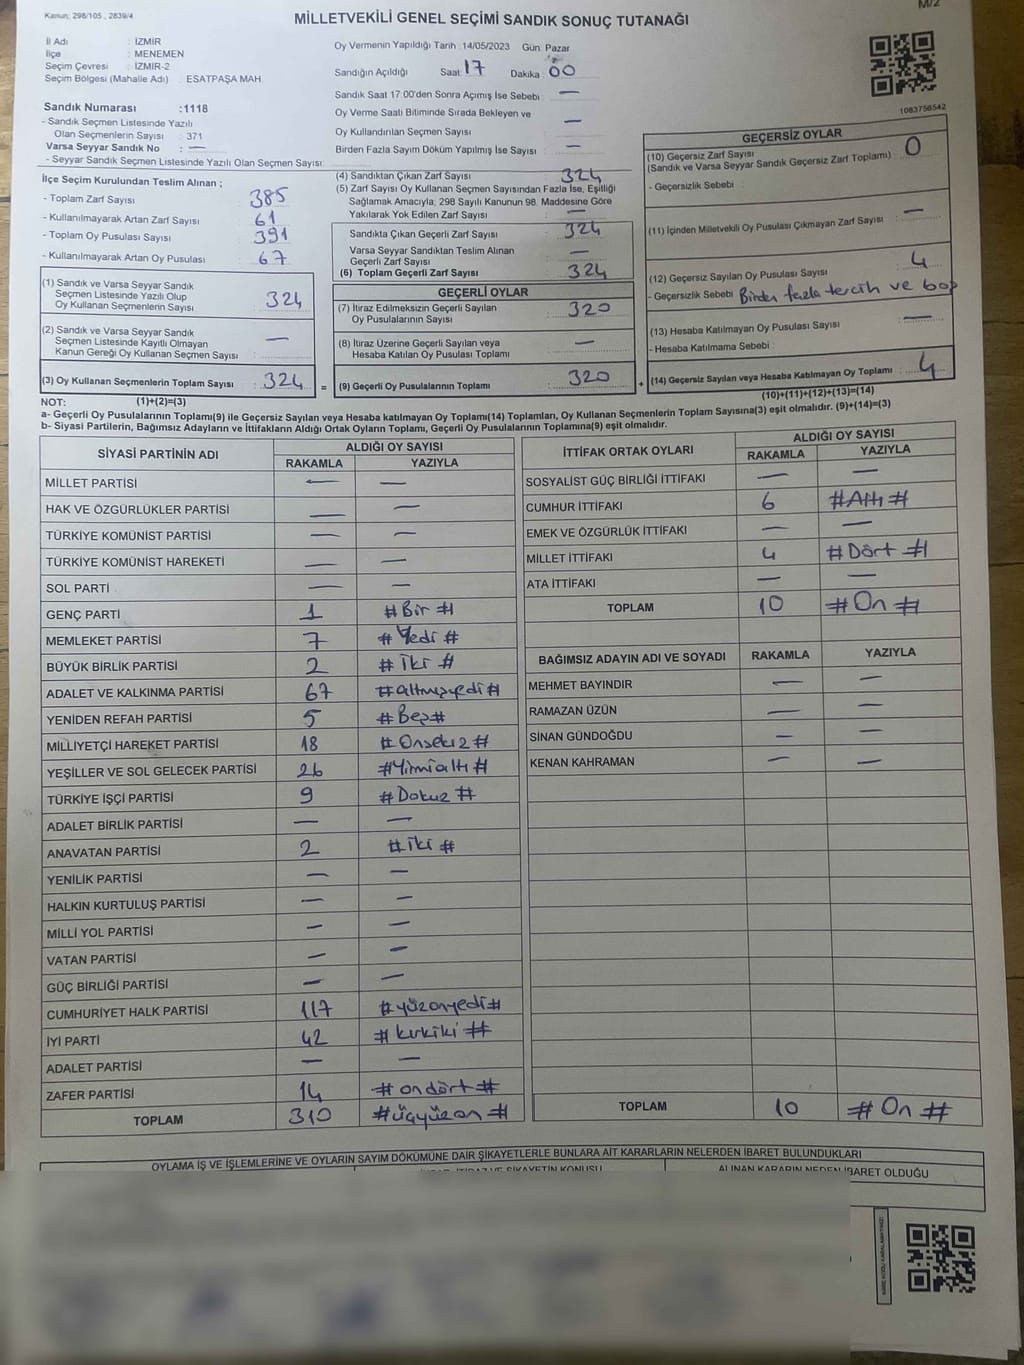 Kanun; 298/105 , 2839/4
M/2
MİLLETVEKİLİ GENEL SEÇİMİ SANDIK SONUÇ TUTANAĞI
İl Adı : İZMİR
İlçe : MENEMEN
Seçim Çevresi : İZMİR-2
Seçim Bölgesi (Mahalle Adı) : ESATPAŞA MAH.
Sandık Numarası :1118
- Sandık Seçmen Listesinde Yazılı
Olan Seçmenlerin Sayısı : 371
Varsa Seyyar Sandık No : —
- Seyyar Sandık Seçmen Listesinde Yazılı Olan Seçmen Sayısı
Oy Vermenin Yapıldığı Tarih :14/05/2023 Gün: Pazar
Sandığın Açıldığı Saat: 17 Dakika : 00
Sandık Saat 17:00'den Sonra Açımış İse Sebebi : —
Oy Verme Saati Bitiminde Sırada Bekleyen ve
Oy Kullandırılan Seçmen Sayısı : —
Birden Fazla Sayım Döküm Yapılmış İse Sayısı : —
1083756542
İlçe Seçim Kurulundan Teslim Alınan ;
- Toplam Zarf Sayısı : 385
- Kullanılmayarak Artan Zarf Sayısı : 61
- Toplam Oy Pusulası Sayısı : 391
- Kullanılmayarak Artan Oy Pusulası : 67
(1) Sandık ve Varsa Seyyar Sandık
Seçmen Listesinde Yazılı Olup
Oy Kullanan Seçmenlerin Sayısı : 324
(2) Sandık ve Varsa Seyyar Sandık
Seçmen Listesinde Kayıtlı Olmayan
Kanun Gereği Oy Kullanan Seçmen Sayısı : —
(3) Oy Kullanan Seçmenlerin Toplam Sayısı : 324 =
(4) Sandıktan Çıkan Zarf Sayısı : 324
(5) Zarf Sayısı Oy Kullanan Seçmen Sayısından Fazla İse, Eşitliği
Sağlamak Amacıyla, 298 Sayılı Kanunun 98. Maddesine Göre
Yakılarak Yok Edilen Zarf Sayısı : —
Sandıkta Çıkan Geçerli Zarf Sayısı : 324
Varsa Seyyar Sandıktan Teslim Alınan
Geçerli Zarf Sayısı : —
(6) Toplam Geçerli Zarf Sayısı : 324
GEÇERLİ OYLAR
(7) İtiraz Edilmeksizin Geçerli Sayılan
Oy Pusulalarının Sayısı : 320
(8) İtiraz Üzerine Geçerli Sayılan veya
Hesaba Katılan Oy Pusulası Toplamı : —
(9) Geçerli Oy Pusulalarının Toplamı : 320 +
GEÇERSİZ OYLAR
(10) Geçersiz Zarf Sayısı
(Sandık ve Varsa Seyyar Sandık Geçersiz Zarf Toplamı) : 0
- Geçersizlik Sebebi :
(11) İçinden Milletvekili Oy Pusulası Çıkmayan Zarf Sayısı : —
(12) Geçersiz Sayılan Oy Pusulası Sayısı : 4
- Geçersizlik Sebebi : Birden fazla tercih ve boş
(13) Hesaba Katılmayan Oy Pusulası Sayısı : —
- Hesaba Katılmama Sebebi :
(14) Geçersiz Sayılan veya Hesaba Katılmayan Oy Toplamı : 4
NOT: (1)+(2)=(3)
(10)+(11)+(12)+(13)=(14)
a- Geçerli Oy Pusulalarının Toplamı(9) ile Geçersiz Sayılan veya Hesaba katılmayan Oy Toplamı(14) Toplamları, Oy Kullanan Seçmenlerin Toplam Sayısına(3) eşit olmalıdır. (9)+(14)=(3)
b- Siyasi Partilerin, Bağımsız Adayların ve İttifakların Aldığı Ortak Oyların Toplamı, Geçerli Oy Pusulalarının Toplamına(9) eşit olmalıdır.
SİYASİ PARTİNİN ADI ALDIĞI OY SAYISI
RAKAMLA YAZIYLA
MİLLET PARTİSİ — —
HAK VE ÖZGÜRLÜKLER PARTİSİ — —
TÜRKİYE KOMÜNİST PARTİSİ — —
TÜRKİYE KOMÜNİST HAREKETİ — —
SOL PARTİ — —
GENÇ PARTİ 1 #Bir#
MEMLEKET PARTİSİ 7 #Yedi#
BÜYÜK BİRLİK PARTİSİ 2 #İki#
ADALET VE KALKINMA PARTİSİ 67 #altmışyedi#
YENİDEN REFAH PARTİSİ 5 #Beş#
MİLLİYETÇİ HAREKET PARTİSİ 18 #Onsekiz#
YEŞİLLER VE SOL GELECEK PARTİSİ 26 #Yirmialtı#
TÜRKİYE İŞÇİ PARTİSİ 9 #Dokuz#
ADALET BİRLİK PARTİSİ — —
ANAVATAN PARTİSİ 2 #iki#
YENİLİK PARTİSİ — —
HALKIN KURTULUŞ PARTİSİ — —
MİLLİ YOL PARTİSİ — —
VATAN PARTİSİ — —
GÜÇ BİRLİĞİ PARTİSİ — —
CUMHURİYET HALK PARTİSİ 117 #yüzonyedi#
İYİ PARTİ 42 #kırkiki#
ADALET PARTİSİ — —
ZAFER PARTİSİ 14 #ondört#
TOPLAM 310 #üçyüzon#
İTTİFAK ORTAK OYLARI ALDIĞI OY SAYISI
RAKAMLA YAZIYLA
SOSYALİST GÜÇ BİRLİĞİ İTTİFAKI — —
CUMHUR İTTİFAKI 6 #Altı#
EMEK VE ÖZGÜRLÜK İTTİFAKI — —
MİLLET İTTİFAKI 4 #Dört#
ATA İTTİFAKI — —
TOPLAM 10 #On#
BAĞIMSIZ ADAYIN ADI VE SOYADI RAKAMLA YAZIYLA
MEHMET BAYINDIR — —
RAMAZAN ÜZÜN — —
SİNAN GÜNDOĞDU — —
KENAN KAHRAMAN — —
TOPLAM 10 #On#
OYLAMA İŞ VE İŞLEMLERİNE VE OYLARIN SAYIM DÖKÜMÜNE DAİR ŞİKAYETLERLE BUNLARA AİT KARARLARIN NELERDEN İBARET BULUNDUKLARI
ALINAN KARARIN NEDEN İBARET OLDUĞU